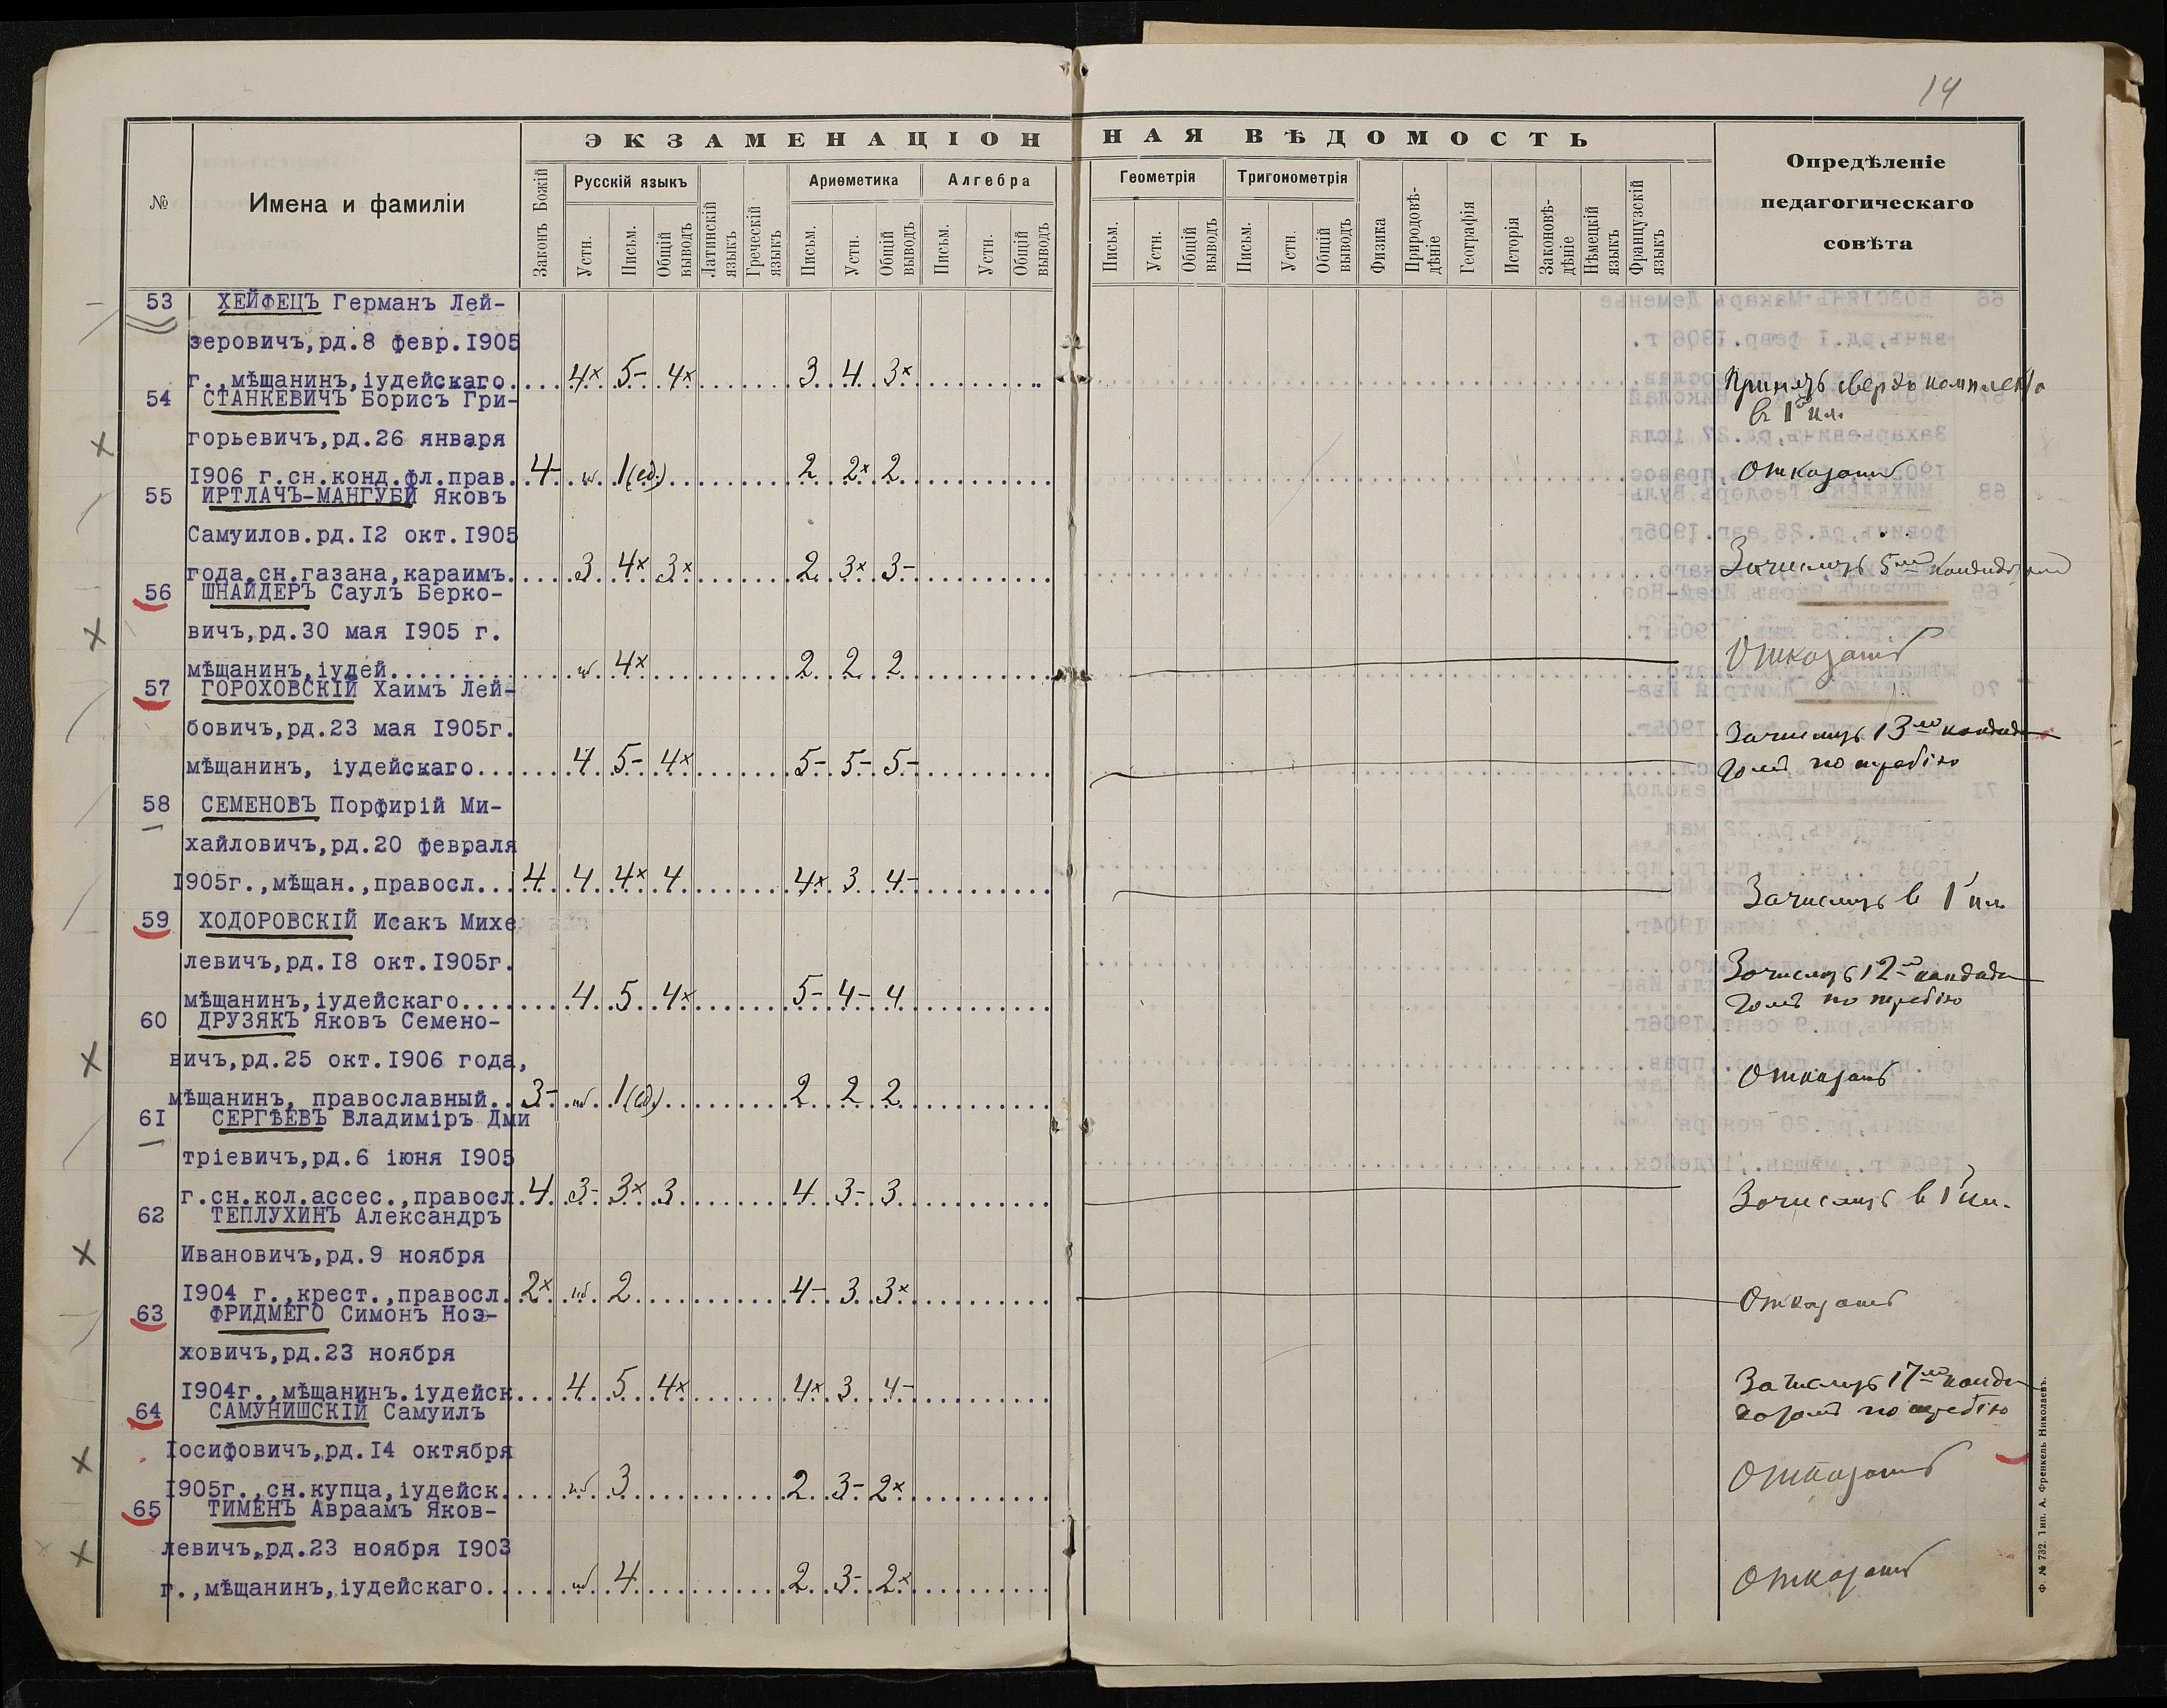 14
ЭКЗАМЕНАЦІОННАЯ ВѢДОМОСТЬ
№
Имена и фамиліи
Законъ Божій
Русскій языкъ
Устн.
Письм.
Общій выводъ
Латинскій языкъ
Греческій языкъ
Ариѳметика
Письм.
Устн.
Общій выводъ
Алгебра
Письм.
Устн.
Общій выводъ
Геометрія
Письм.
Устн.
Общій выводъ
Тригонометрія
Письм.
Устн.
Общій выводъ
Физика
Природовѣдѣніе
Географія
Исторія
Законовѣдѣніе
Нѣмецкій языкъ
Французскій языкъ
Опредѣленіе
педагогическаго
совѣта
53 ХЕЙФЕЦЪ Германъ Лей-
зеровичъ,рд.8 февр.1905
г.,мѣщанинъ,іудейскаго.... 4× 5- 4× 3 4 3× Принять сверхъ комплекта
в 1й кл.
54 СТАНКЕВИЧЪ Борисъ Гри-
горьевичъ,рд.26 января
1906 г.сн.конд.фл.прав. 4- 1(ед.) 2 2× 2 Отказать
55 ИРТЛАЧЪ-МАНГУБИ Яковъ
Самуилов.рд.12 окт.1905
года,сн.газана,караимъ. 3 4× 3× 2 3× 3- Зачислить 5мъ кандидатомъ
56 ШНАЙДЕРЪ Саулъ Берко-
вичъ,рд.30 мая 1905 г.
мѣщанинъ,іудей.......... 4× 2 2 2 Отказать
57 ГОРОХОВСКІЙ Хаимъ Лей-
бовичъ,рд.23 мая 1905г.
мѣщанинъ, іудейскаго... 4 5- 4× 5- 5- 5- Зачислить 13мъ кандида
томъ по жребію
58 СЕМЕНОВЪ Порфирій Ми-
хайловичъ,рд.20 февраля
1905г.,мѣщан.,правосл... 4 4 4× 4 4× 3 4- Зачислить в 1 кл.
59 ХОДОРОВСКІЙ Исакъ Михе
левичъ,рд.18 окт.1905г.
мѣщанинъ,іудейскаго.... 4 5 4× 5- 4- 4 Зачислить 12мъ кандида
томъ по жребію
60 ДРУЗЯКЪ Яковъ Семено-
вичъ,рд.25 окт.1906 года,
мѣщанинъ, православный.. 3- 1(ед.) 2 2 2 Отказать
61 СЕРГѢЕВЪ Владиміръ Дми
тріевичъ,рд.6 іюня 1905
г.сн.кол.ассес.,правосл. 4 3- 3× 3 4 3- 3 Зачислить в 1 кл.
62 ТЕПЛУХИНЪ Александръ
Ивановичъ,рд.9 ноября
1904 г.,крест.,правосл. 2× 2 4- 3 3× Отказать
63 ФРИДМЕГО Симонъ Ноэ-
ховичъ,рд.23 ноября
1904г.,мѣщанинъ.іудейск. 4 5 4× 4× 3 4- Зачислить 17мъ канди
датомъ по жребію
64 САМУНИШСКІЙ Самуилъ
Іосифовичъ,рд.14 октября
1905г.,сн.купца,іудейск. 3 2 3- 2× Отказать
65 ТИМЕНЪ Авраамъ Яков-
левичъ,рд.23 ноября 1903
г.,мѣщанинъ,іудейскаго.. 4 2 3- 2× Отказать
Ф. № 732. Тип. А. Френкель Николаевъ.